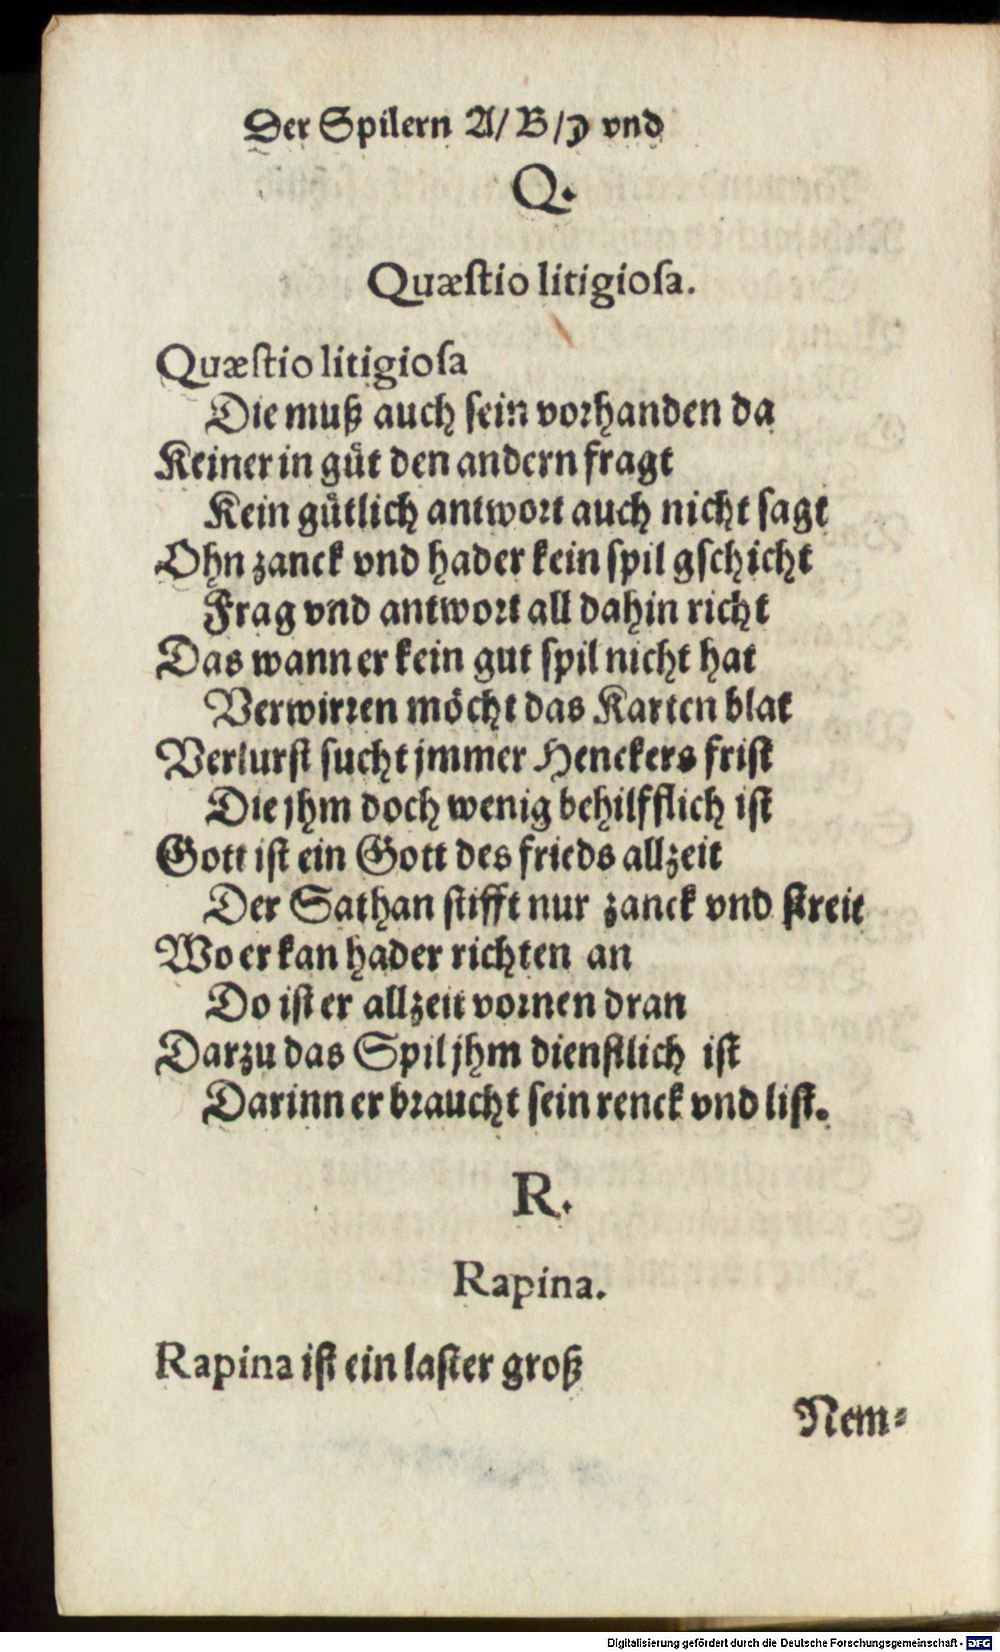 Der Spilern A/ B/ J vnd
Q.
Quæſtio litigioſa.
Quæſtio litigioſa
Die muß auch ſein vorhanden da
Keiner in guͤt den andern fragt
Kein guͤtlich antwort auch nicht ſagt
Ohn zanck vnd hader kein ſpil gſchicht
Frag vnd antwort all dahin richt
Das wann er kein gut ſpil nicht hat
Verwirren moͤcht das Karten blat
Verlurſt ſucht jmmer Henckers friſt
Die jhm doch wenig behilfflich iſt
Gott iſt ein Gott des frieds allzeit
Der Sathan ſtifft nur zanck vnd ſtreit
Wo er kan hader richten an
Do iſt er allzeit vornen dran
Darzu das Spil jhm dienſtlich iſt
Darinn er braucht ſein renck vnd liſt.
R.
Rapina.
Rapina iſt ein laſter groß
Nem⸗
Digitalisierung gefördert durch die Deutsche Forschungsgemeinschaft - DFG